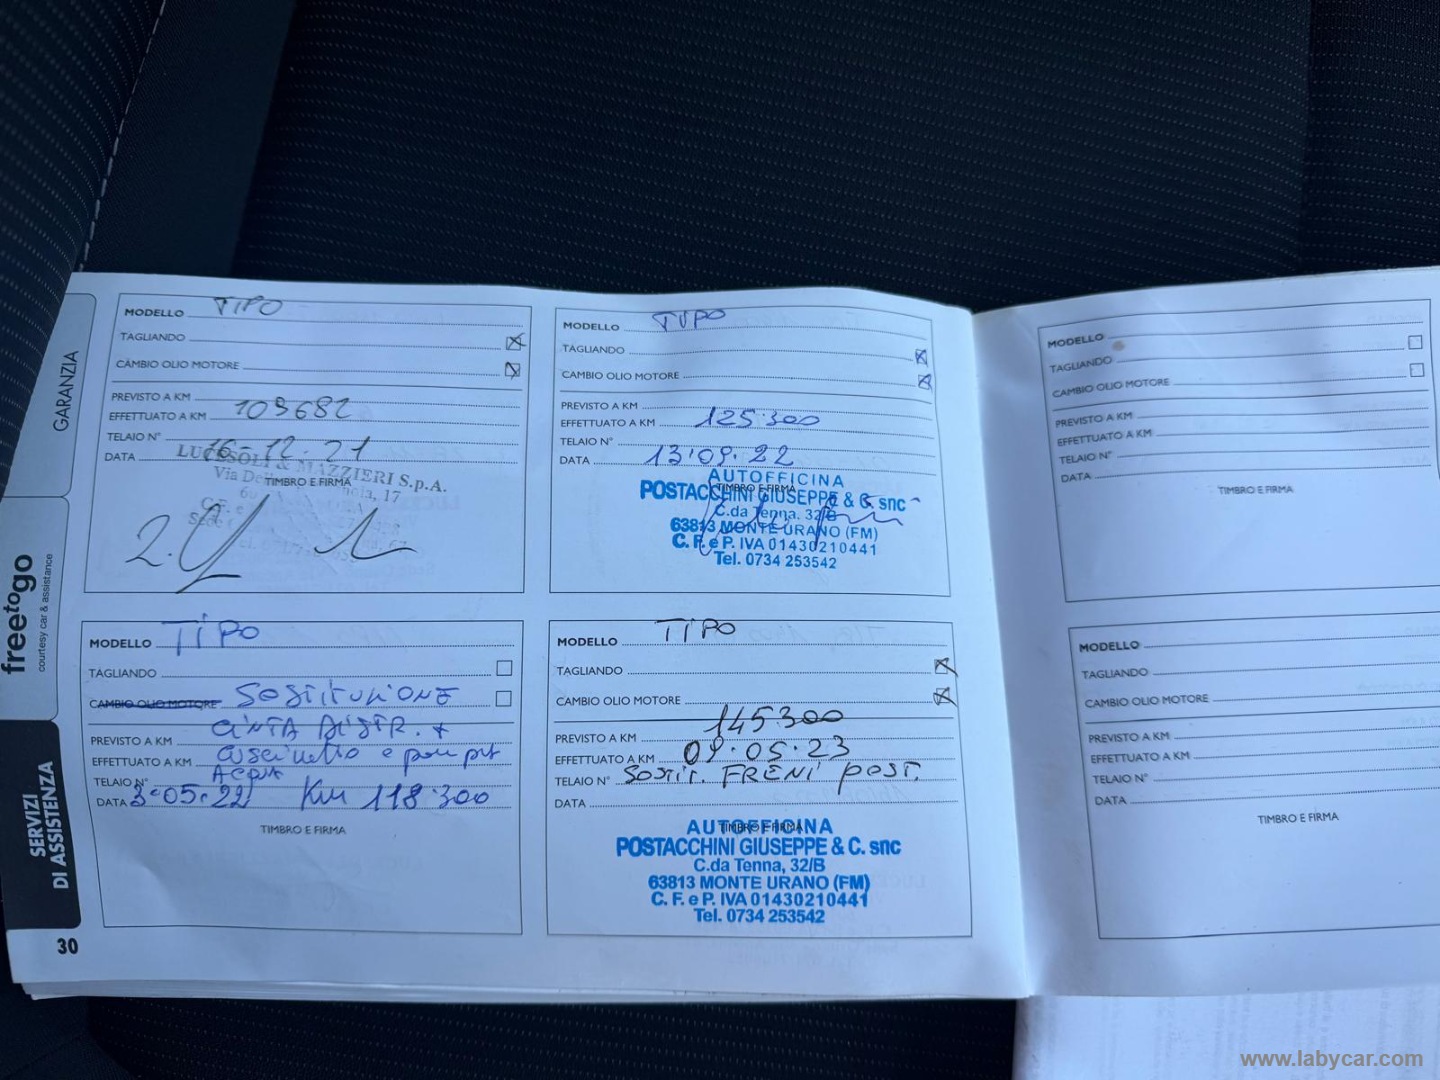 GARANZIA
freetogo
courtesy car & assistance
SERVIZI
DI ASSISTENZA
30
MODELLO TIPO
TAGLIANDO
CAMBIO OLIO MOTORE
PREVISTO A KM
EFFETTUATO A KM 109682
TELAIO N°
DATA 16-12-21
LUCESOLI & MAZZIERI S.p.A.
TIMBRO E FIRMA
MODELLO TIPO
TAGLIANDO
CAMBIO OLIO MOTORE
PREVISTO A KM
EFFETTUATO A KM 125.300
TELAIO N°
DATA 13.09.22
AUTOFFICINA
TIMBRO E FIRMA
POSTACCHINI GIUSEPPE & C. snc
C.da Tenna, 32/B
63813 MONTE URANO (FM)
C. F. e P. IVA 01430210441
Tel. 0734 253542
MODELLO TIPO
TAGLIANDO
CAMBIO OLIO MOTORE SOSTITUZIONE
CINTA DISTR. +
PREVISTO A KM
EFFETTUATO A KM cuscinetto e pompa
TELAIO N° ACQUA
DATA 3.05.22 Km 118.300
TIMBRO E FIRMA
MODELLO TIPO
TAGLIANDO
CAMBIO OLIO MOTORE
PREVISTO A KM 145.300
EFFETTUATO A KM 09.05.23
TELAIO N° SOSTIT. FRENI POST.
DATA
AUTOFFICINA
TIMBRO E FIRMA
POSTACCHINI GIUSEPPE & C. snc
C.da Tenna, 32/B
63813 MONTE URANO (FM)
C. F. e P. IVA 01430210441
Tel. 0734 253542
MODELLO
TAGLIANDO
CAMBIO OLIO MOTORE
PREVISTO A KM
EFFETTUATO A KM
TELAIO N°
DATA
TIMBRO E FIRMA
MODELLO
TAGLIANDO
CAMBIO OLIO MOTORE
PREVISTO A KM
EFFETTUATO A KM
TELAIO N°
DATA
TIMBRO E FIRMA
www.labycar.com